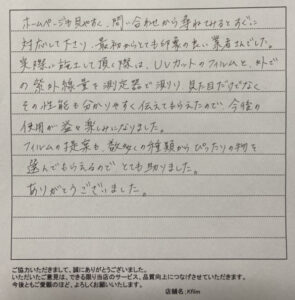 ホームページも見やすく、問い合わせから尋ねてみるとすぐに
対応して下さり、最初からとても印象の良い業者さんでした。
実際に施工して頂く際は、UVカットのフィルムと、外での
紫外線量を測定器で測り、見た目だけでなく
その性能も分かりやすく伝えてもらえたので、今後の
使用が益々楽しみになりました。
フィルムの提案も、数多くの種類からぴったりの物を
選んでもらえるので とても助りました。
ありがとうございました。
ご協力いただきまして、誠にありがとうございました。
いただいたご意見は、できる限り当店のサービス、品質向上につなげさせていただきます。
今後ともご愛顧のほど、よろしくお願いいたします。
店舗名:Kfilm